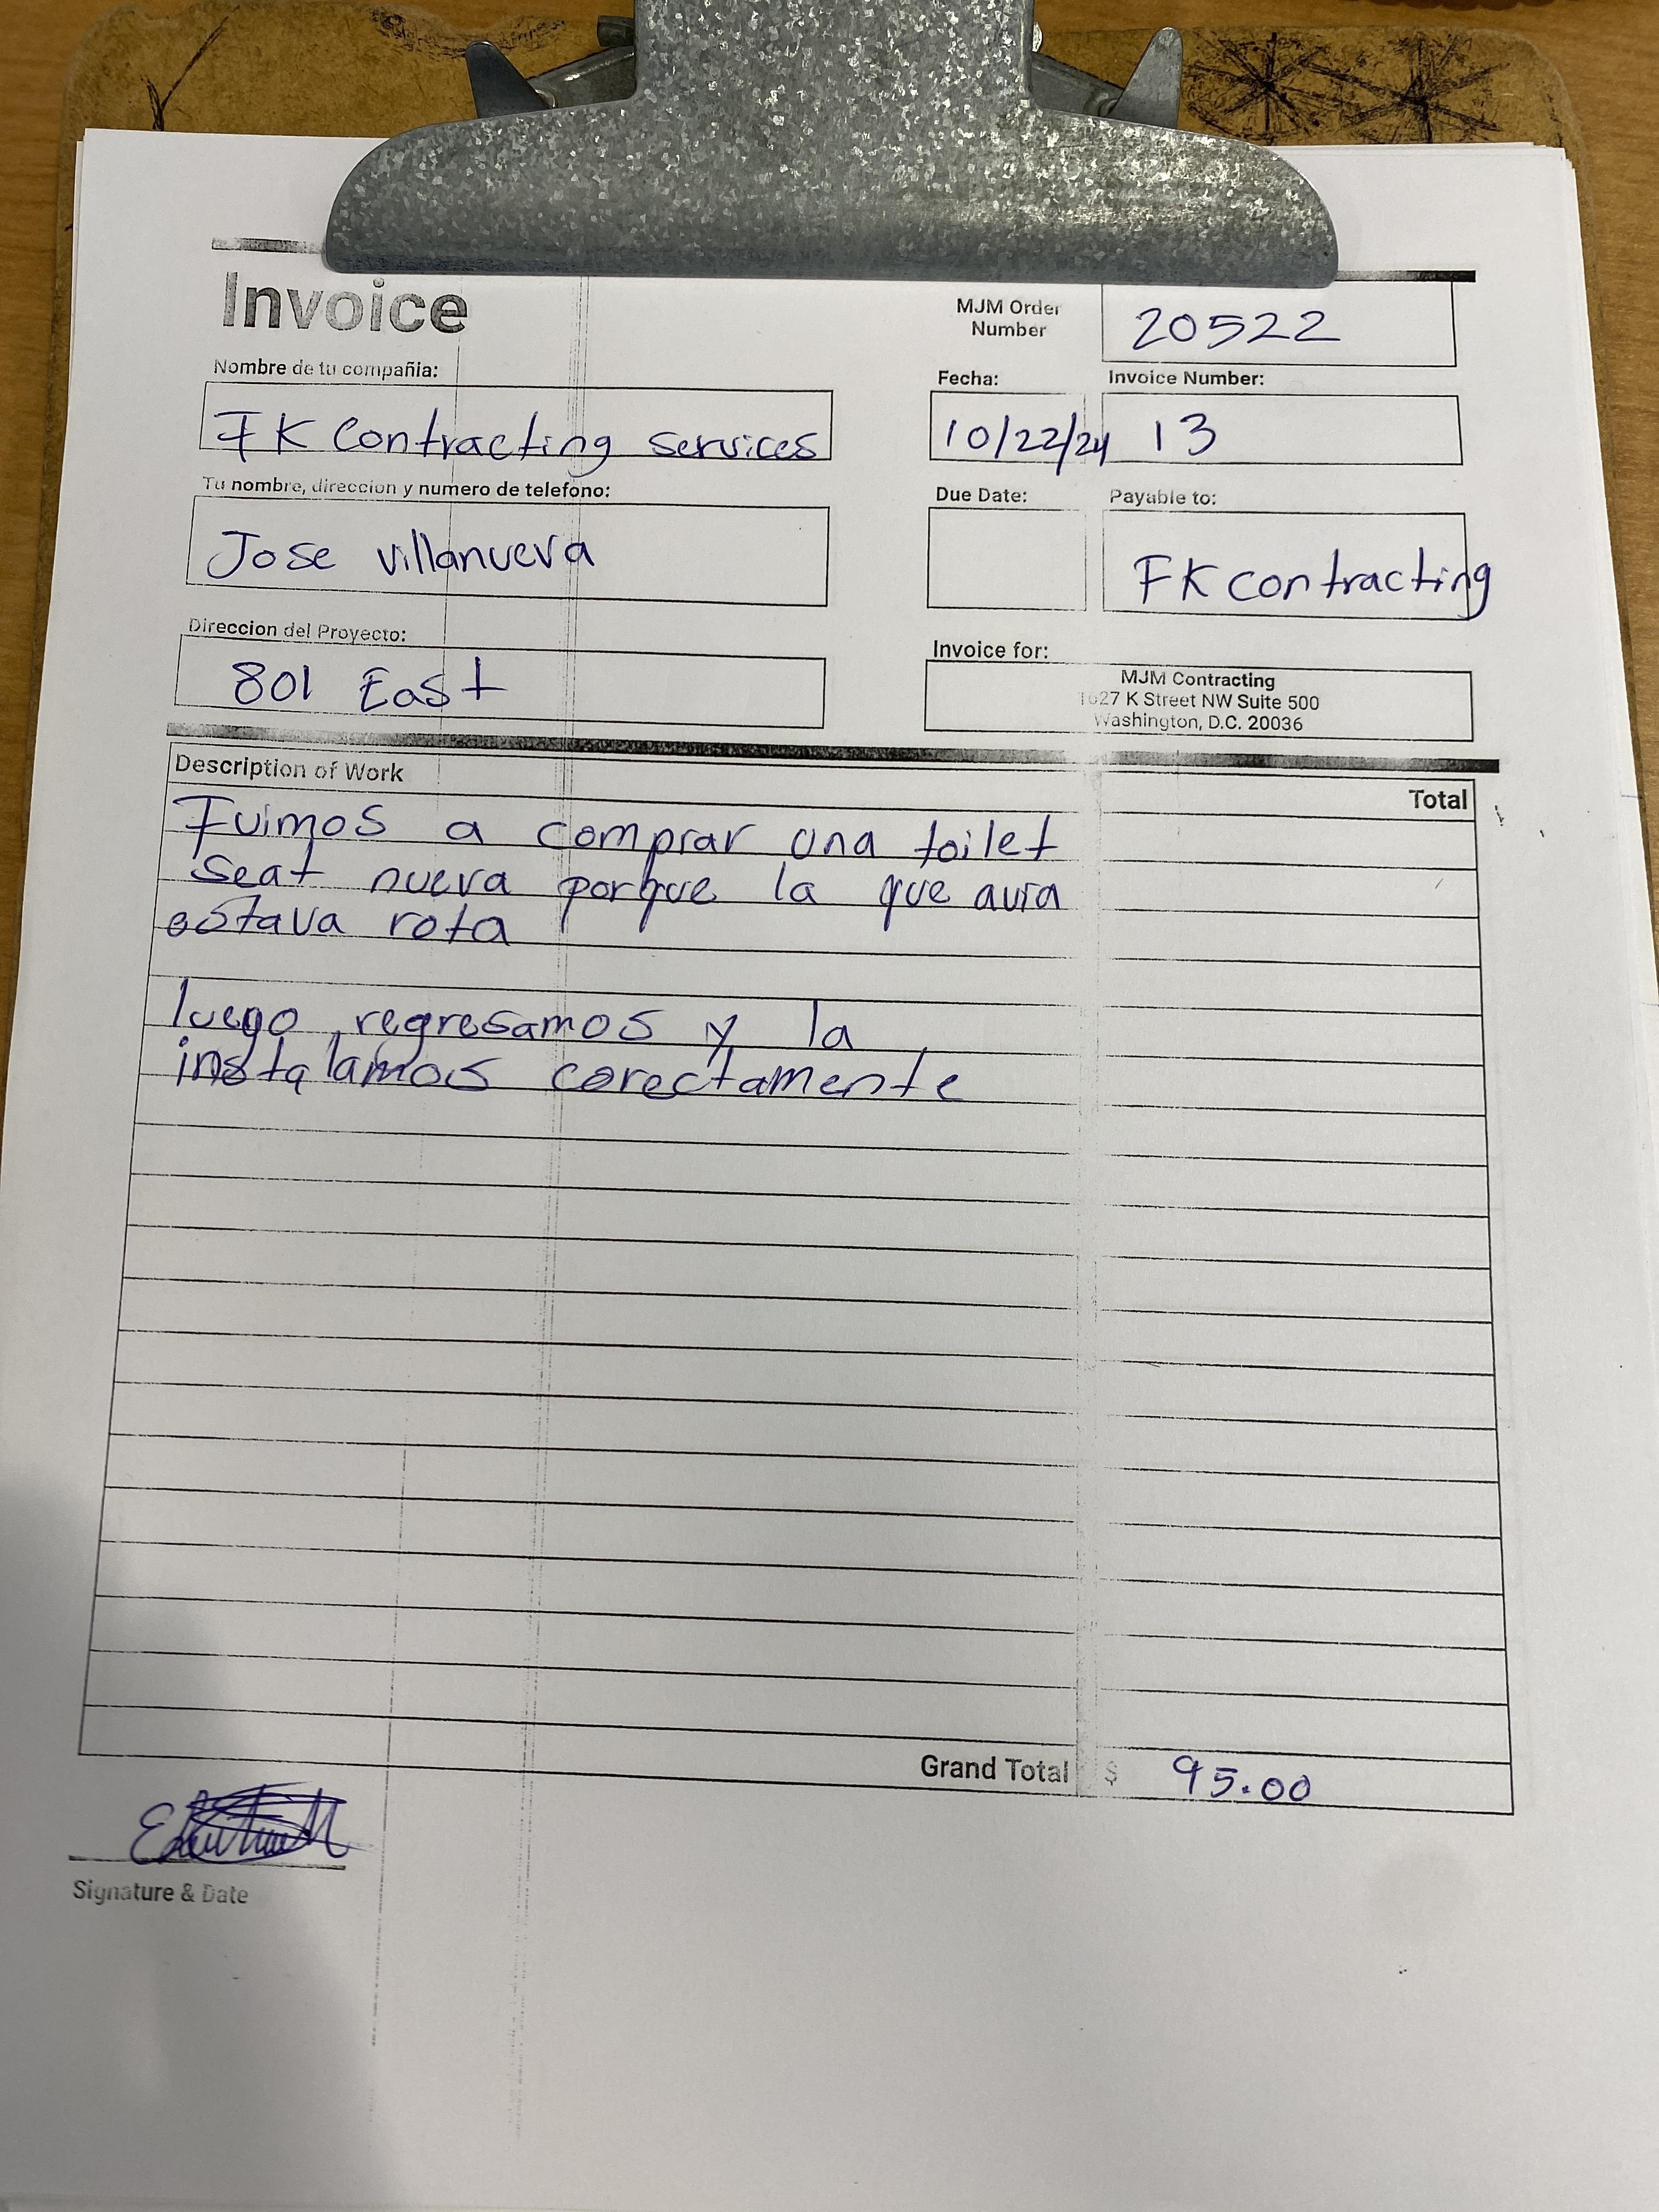 Invoice
MJM Order
Number
20522
Nombre de tu compañia:
FK Contracting services
Fecha:
10/22/24
Invoice Number:
13
Tu nombre, direccion y numero de telefono:
Jose villanueva
Due Date:
Payable to:
FK contracting
Direccion del Proyecto:
801 East
Invoice for:
MJM Contracting
1627 K Street NW Suite 500
Washington, D.C. 20036
Description of Work
Total
Fuimos a comprar una toilet
seat nueva porque la que avia
estava rota
luego regresamos y la
instalamos corectamente
Grand Total $ 95.00
Signature & Date